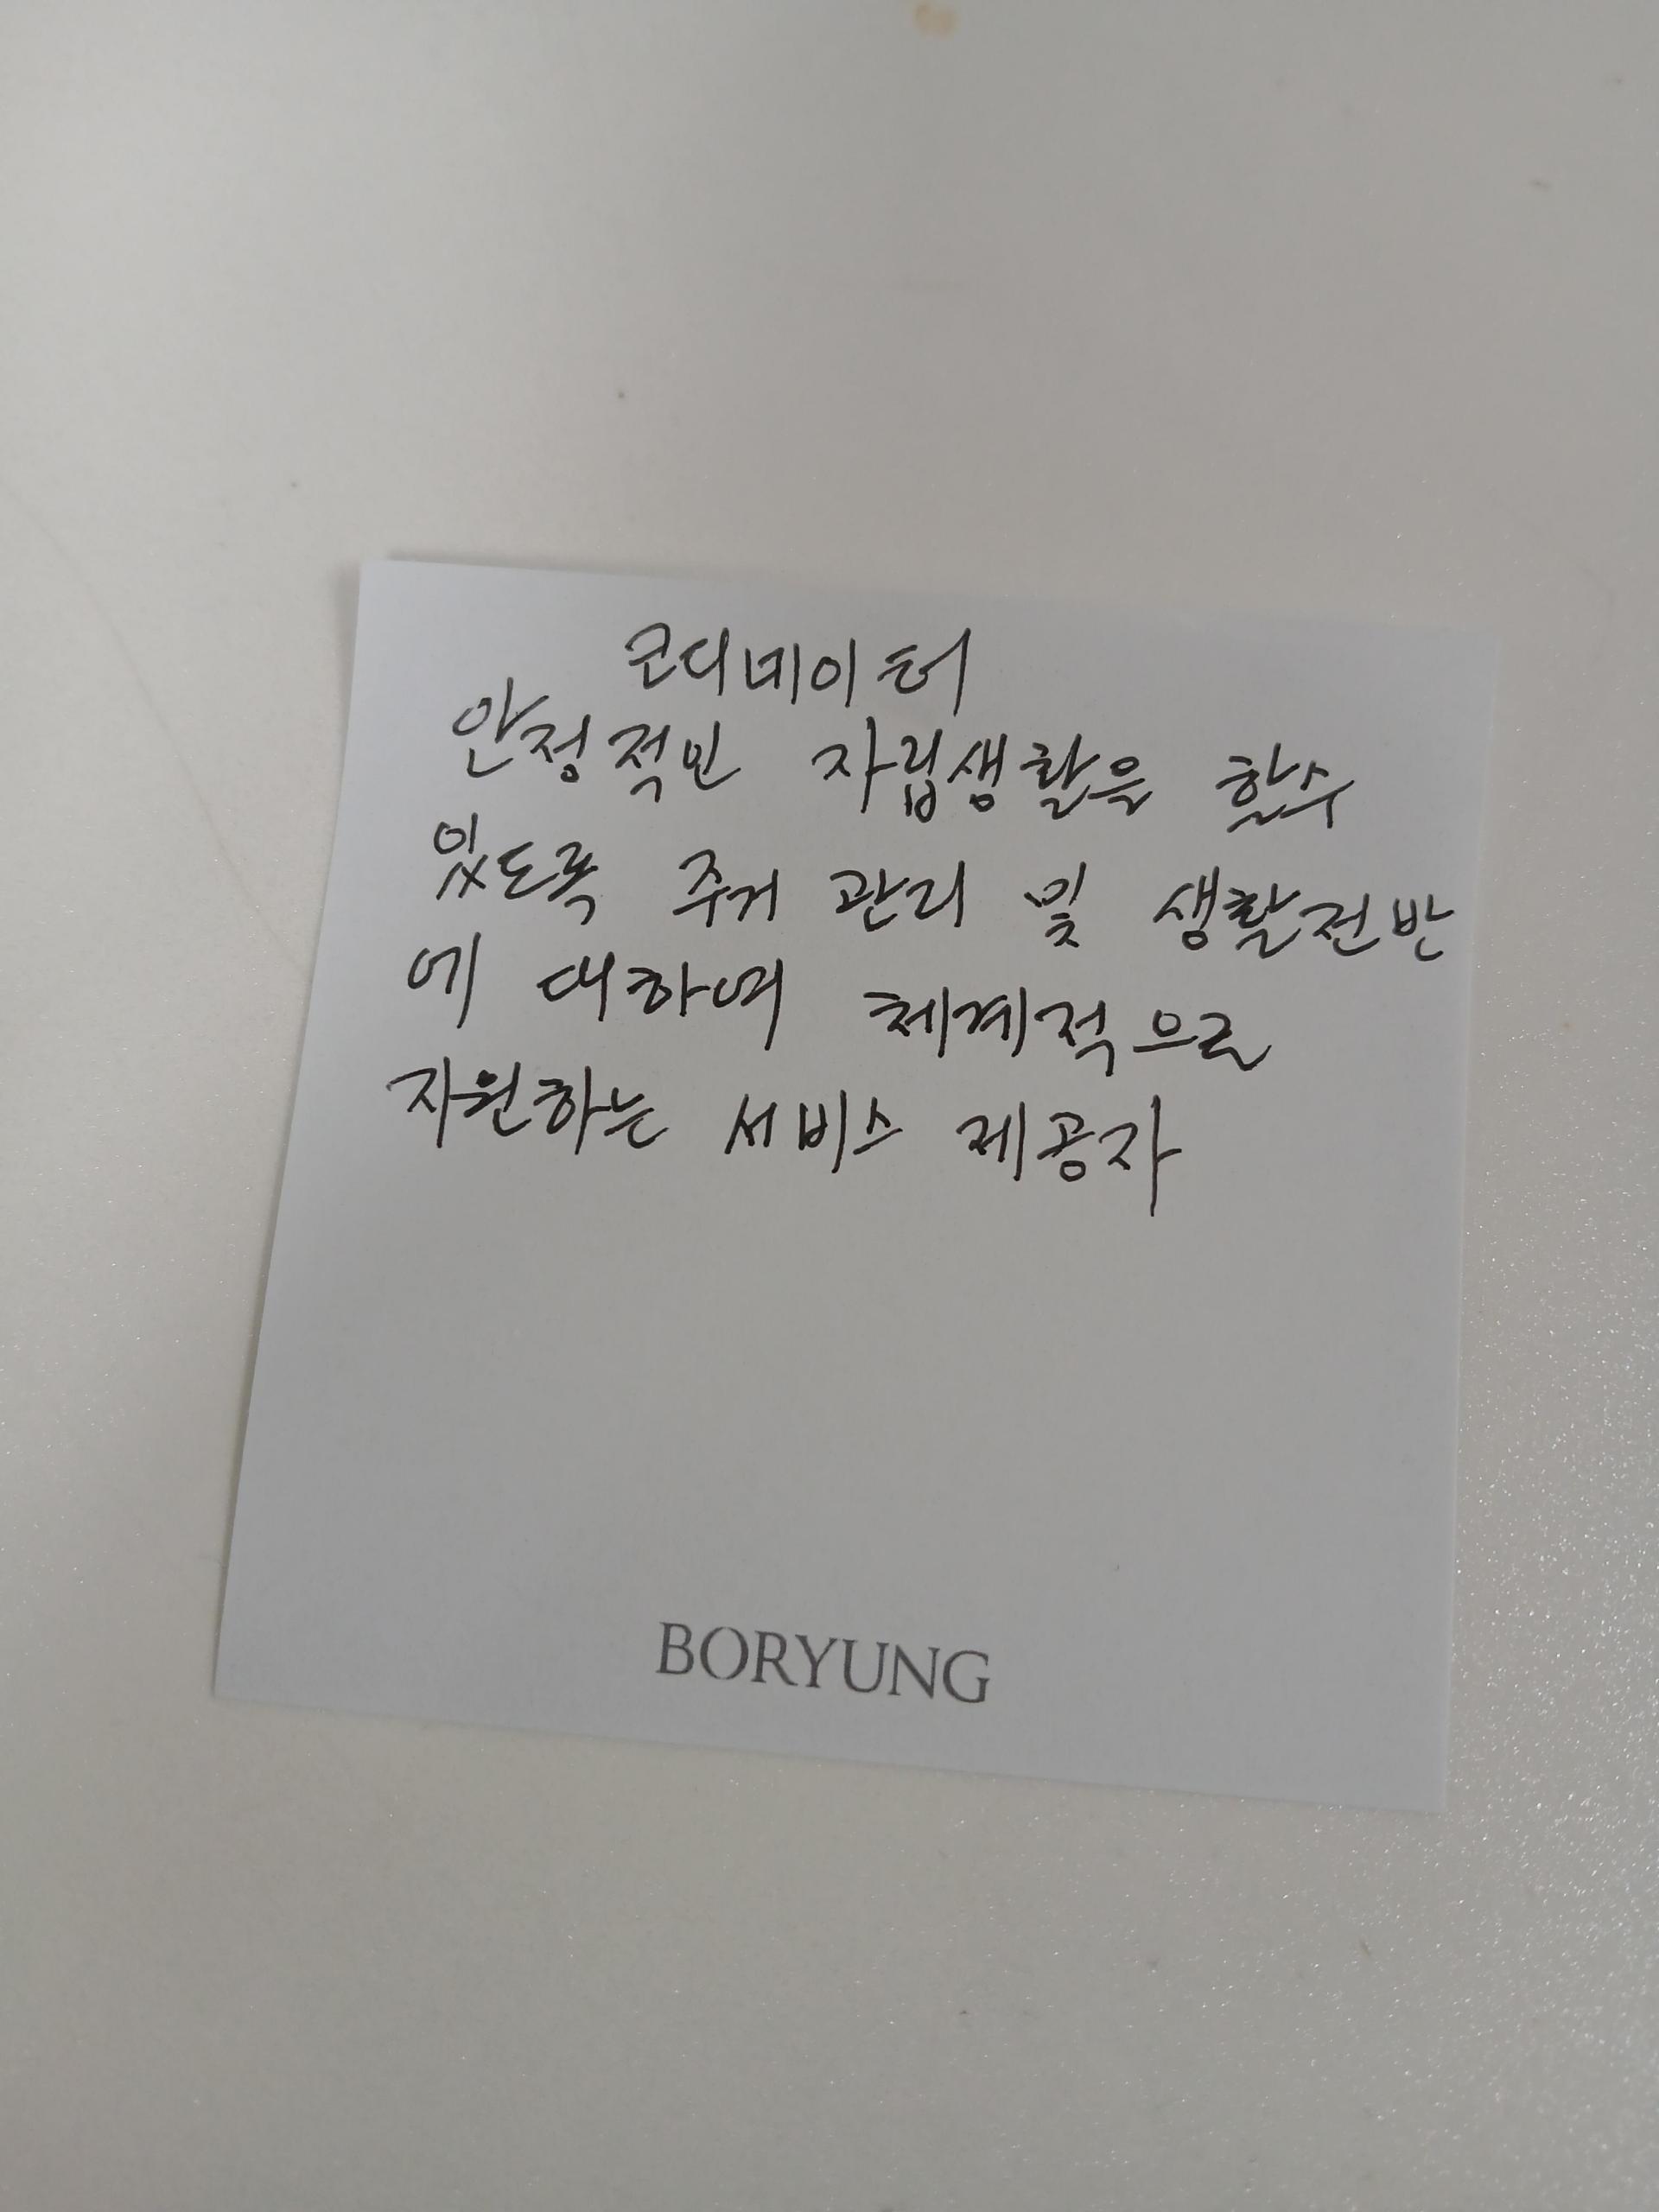 코디네이터
안정적인 자립생활을 할수
있도록 주거 관리 및 생활전반
에 대하여 체계적으로
지원하는 서비스 제공자
BORYUNG